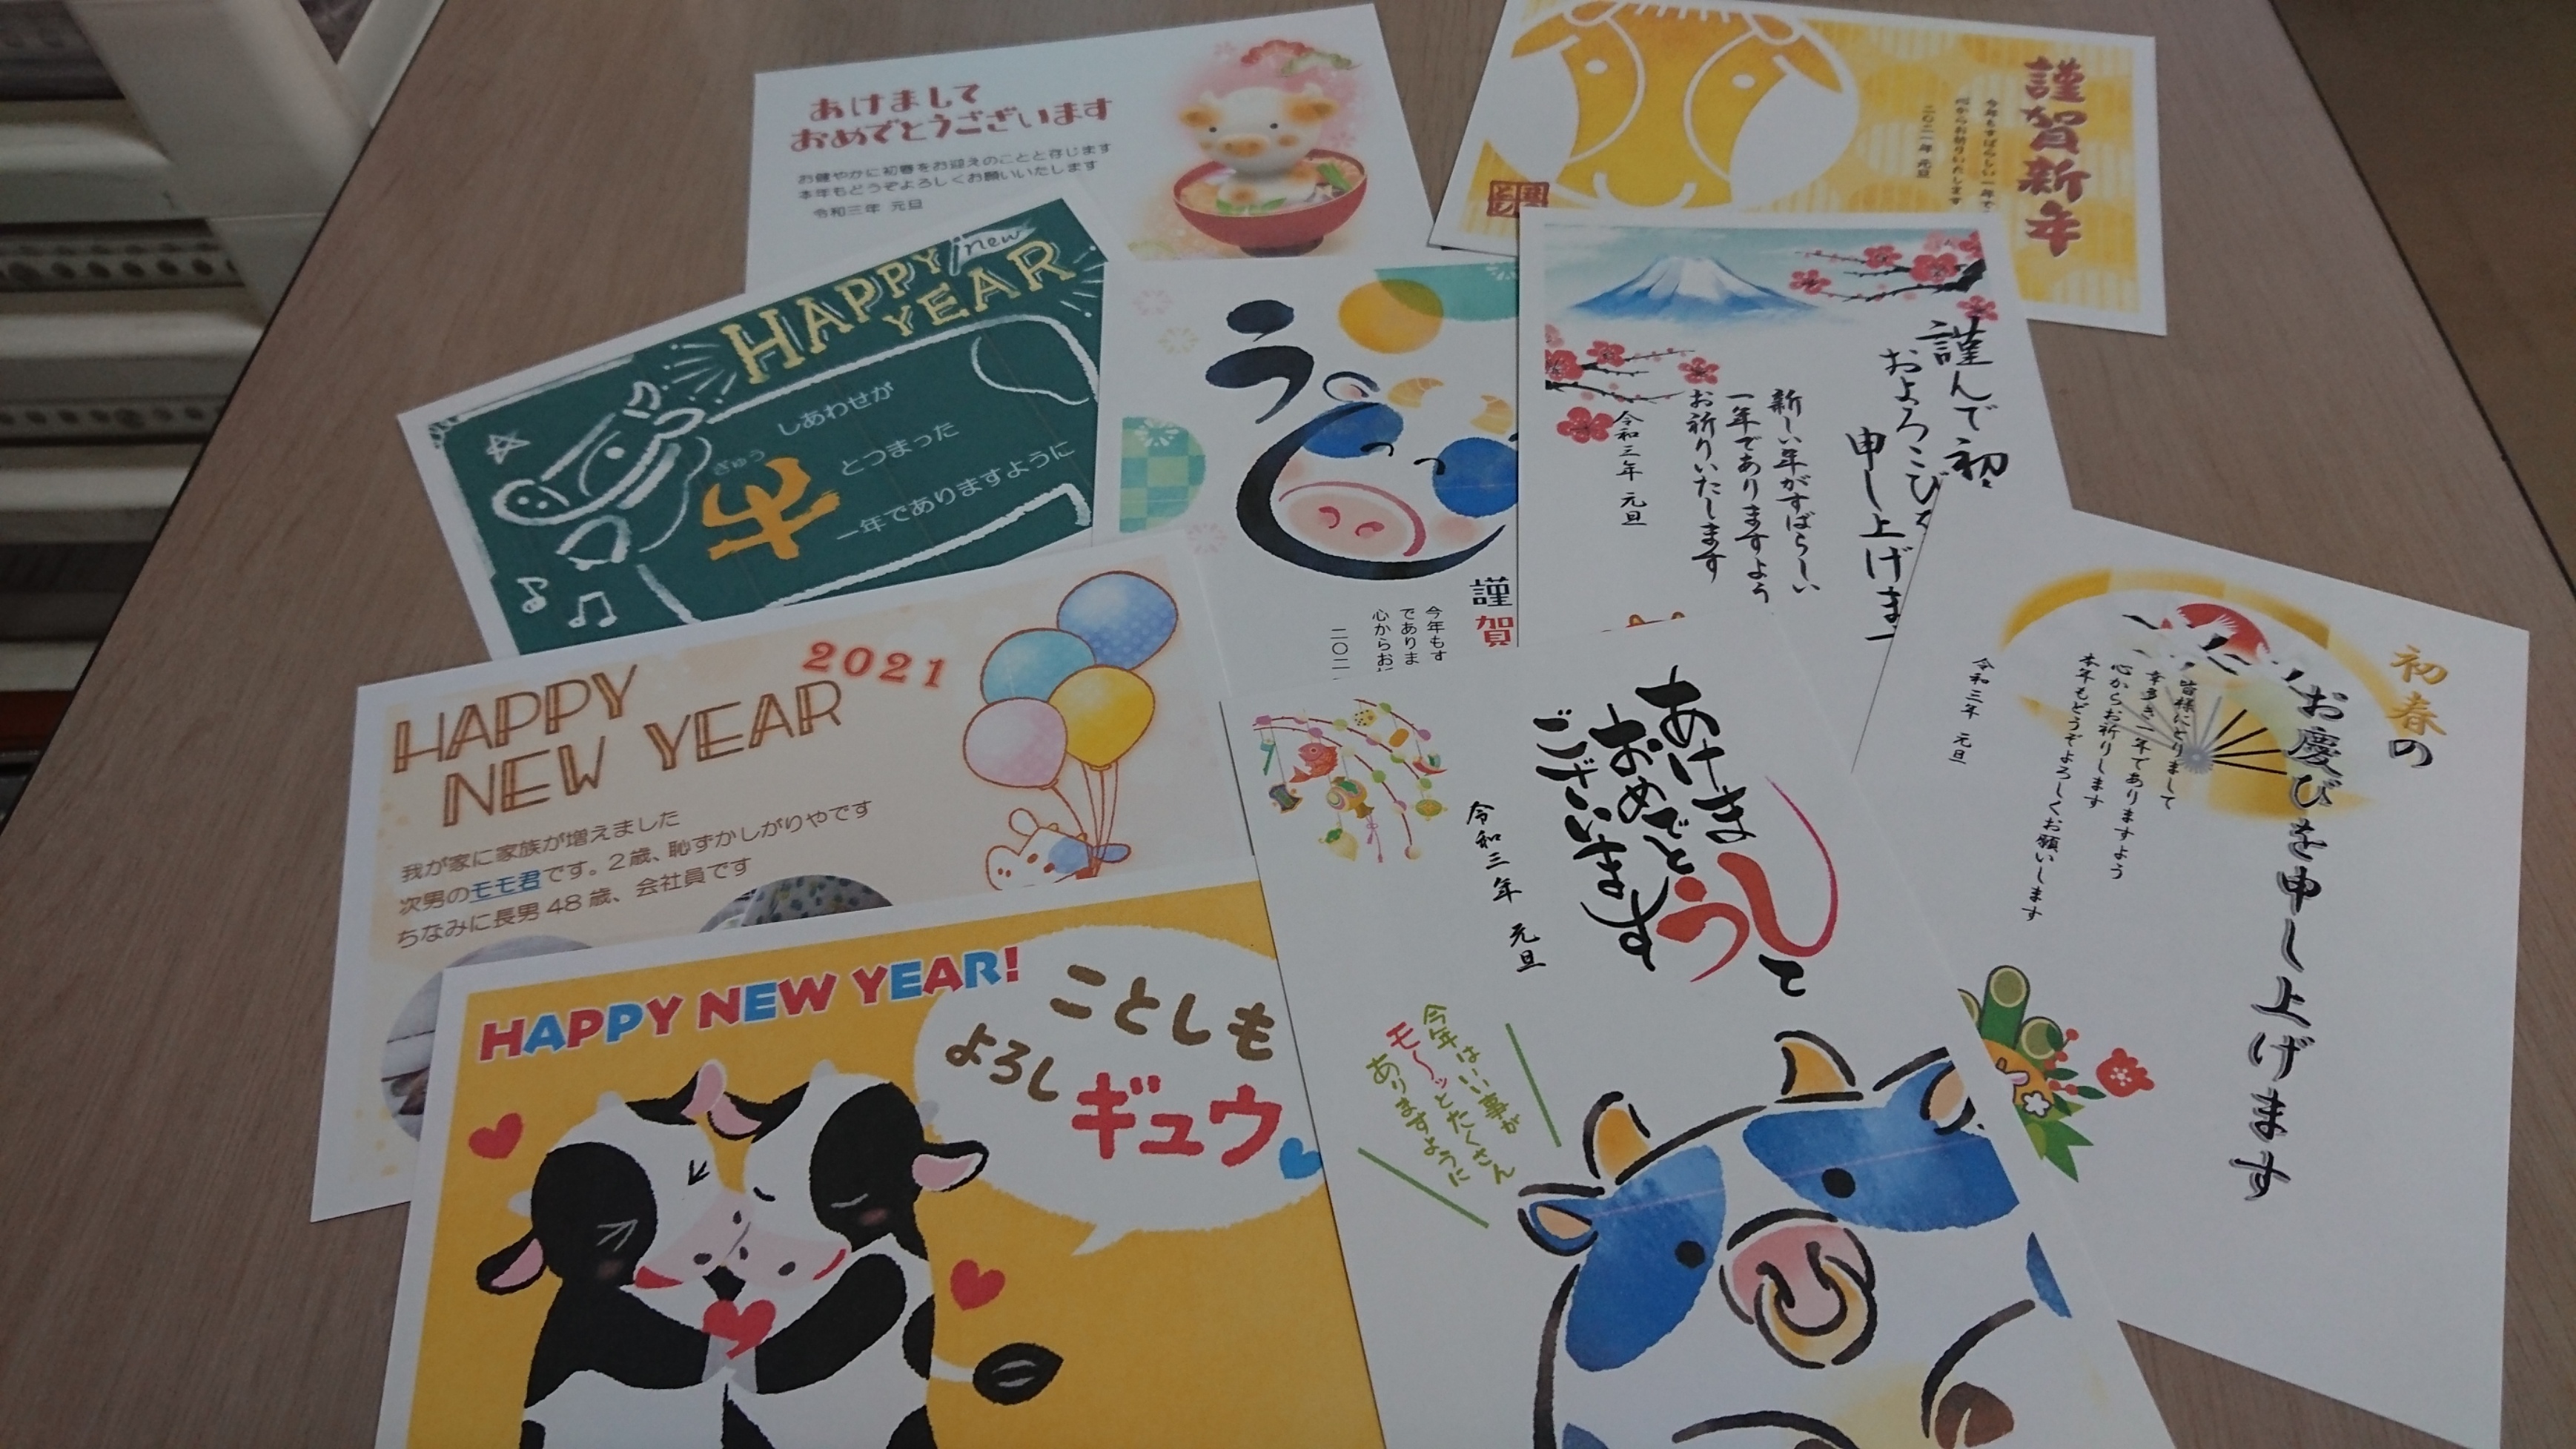 あけまして
おめでとうございます
お健やかに初春をお迎えのことと存じます
本年もどうぞよろしくお願いいたします
令和三年 元旦
謹賀新年
今年もすばらしい一年で
心からお祈りいたします
二〇二一年 元旦
HAPPY new
YEAR
しあわせが
ぎゅう
牛
とつまった
一年でありますように
うし
謹賀
今年もす
でありま
心からお祈
二〇二一
謹んで初
およろこびを
申し上げま
新しい年がすばらしい
一年でありますよう
お祈りいたします
令和三年 元旦
初春の
お慶びを申し上げます
皆様にとりまして
幸多き一年でありますよう
心からお祈りします
本年もどうぞよろしくお願いします
令和三年 元旦
2021
HAPPY
NEW YEAR
我が家に家族が増えました
次男のモモ君です。2歳、恥ずかしがりやです
ちなみに長男48歳、会社員です
あけまして
おめでとう
ございます
令和三年 元旦
今年はいい事が
モ〜ッとたくさん
ありますように
HAPPY NEW YEAR!
ことしも
よろし
ギュウ